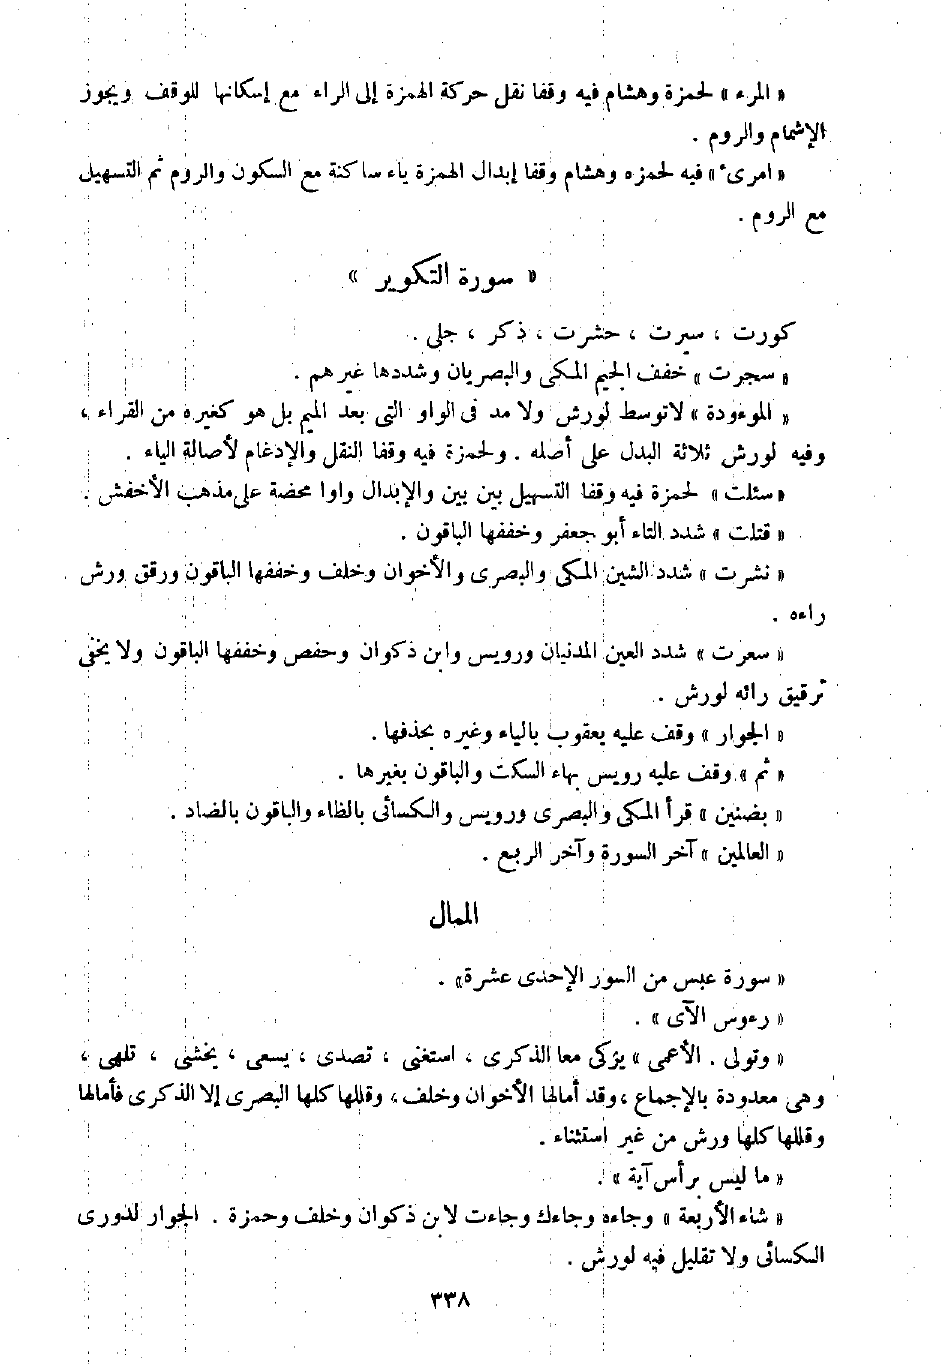 « المرء » لحمزة وهشام فيه وقفا نقل حركة الهمزة إلى الراء مع إسكانها للوقف ويجوز
الإشمام والروم .
« امرئ » فيه لحمزه وهشام وقفا إبدال الهمزة ياء ساكنة مع السكون والروم ثم التسهيل
مع الروم .
« سورة التكوير »
كورت ، سيرت ، حشرت ، ذكر ، جلى .
« سجرت » خفف الجيم المكى والبصريان وشددها غيرهم .
« الموءودة » لاتوسط لورش ولا مد فى الواو التى بعد الميم بل هو كغيره من القراء ،
وفيه لورش ثلاثة البدل على أصله . ولحمزة فيه وقفا النقل والإدغام لأصالة الياء .
« سئلت » لحمزة فيه وقفا التسهيل بين بين والإبدال واوا محضة على مذهب الأخفش .
« قتلت » شدد التاء أبو جعفر وخففها الباقون .
« نشرت » شدد الشين المكى والبصرى والأخوان وخلف وخففها الباقون ورقق ورش
راءه .
« سعرت » شدد العين المدنيان ورويس وابن ذكوان وحفص وخففها الباقون ولا يخفى
ترقيق رائه لورش .
« الجوار » وقف عليه يعقوب بالياء وغيره بحذفها .
« ثم » وقف عليه رويس بهاء السكت والباقون بغيرها .
« بضنين » قرأ المكى والبصرى ورويس والكسائى بالظاء والباقون بالضاد .
« العالمين » آخر السورة وآخر الربع .
الممال
« سورة عبس من السور الإحدى عشرة» .
« رءوس الآى » .
« وتولى . الأعمى » يزكى معا الذكرى ، استغنى ، تصدى ، يسعى ، يخشى ، تلهى ،
وهى معدودة بالإجماع ، وقد أمالها الأخوان وخلف ، وقللها كلها البصرى إلا الذكرى فأمالها
وقللها كلها ورش من غير استثناء .
« ما ليس برأس آية » .
« شاء الأربعة » وجاءه وجاءك وجاءت لابن ذكوان وخلف وحمزة . الجوار لدورى
الكسائى ولا تقليل فيه لورش .
٣٣٨